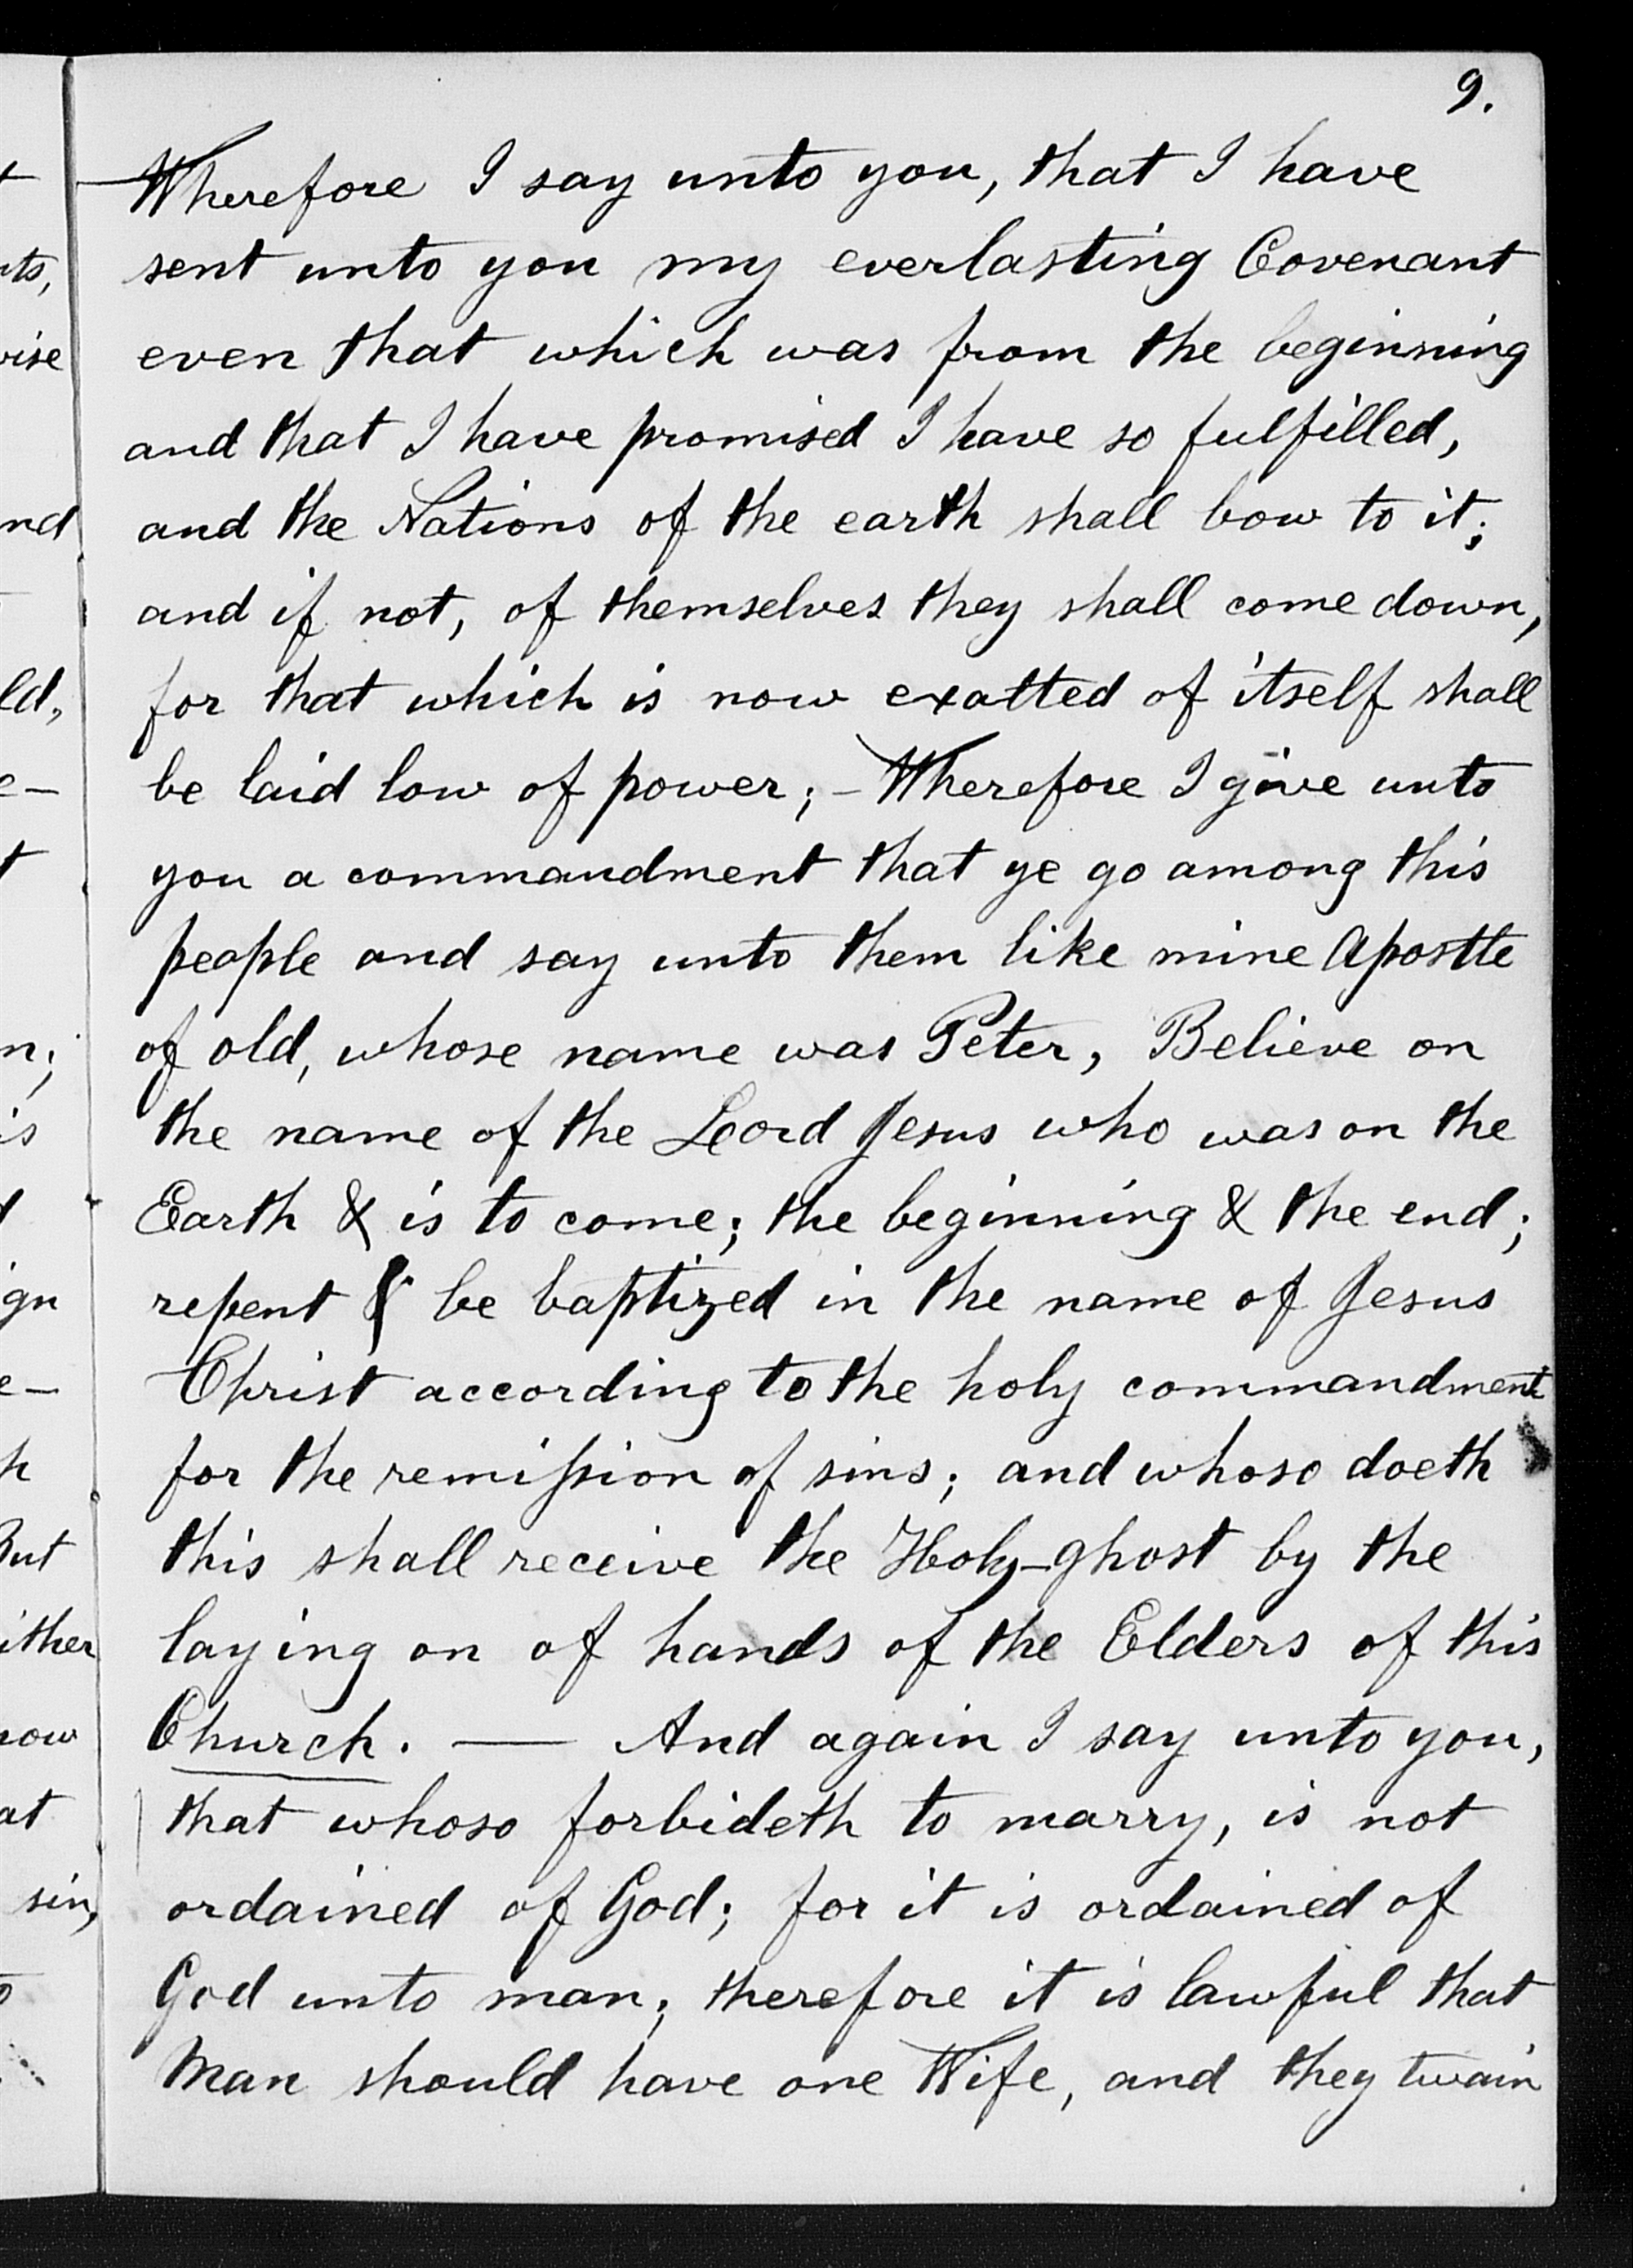 9.
Wherefore I say unto you, that I have
sent unto you my everlasting Covenant
even that which was from the beginning
and that I have promised I have so fulfilled,
and the Nations of the earth shall bow to it;
and if not, of themselves they shall come down,
for that which is now exalted of itself shall
be laid low of power; – Wherefore I give unto
you a commandment that ye go among this
people and say unto them like mine Apostle
of old, whose name was Peter, Believe on
the name of the Lord Jesus who was on the
Earth & is to come; the beginning & the end;
repent & be baptized in the name of Jesus
Christ according to the holy commandment
for the remission of sins; and whoso doeth
this shall receive the Holy-ghost by the
laying on of hands of the Elders of this
Church. — And again I say unto you,
that whoso forbideth to marry, is not
ordained of God; for it is ordained of
God unto man; therefore it is lawful that
Man should have one Wife, and they twain